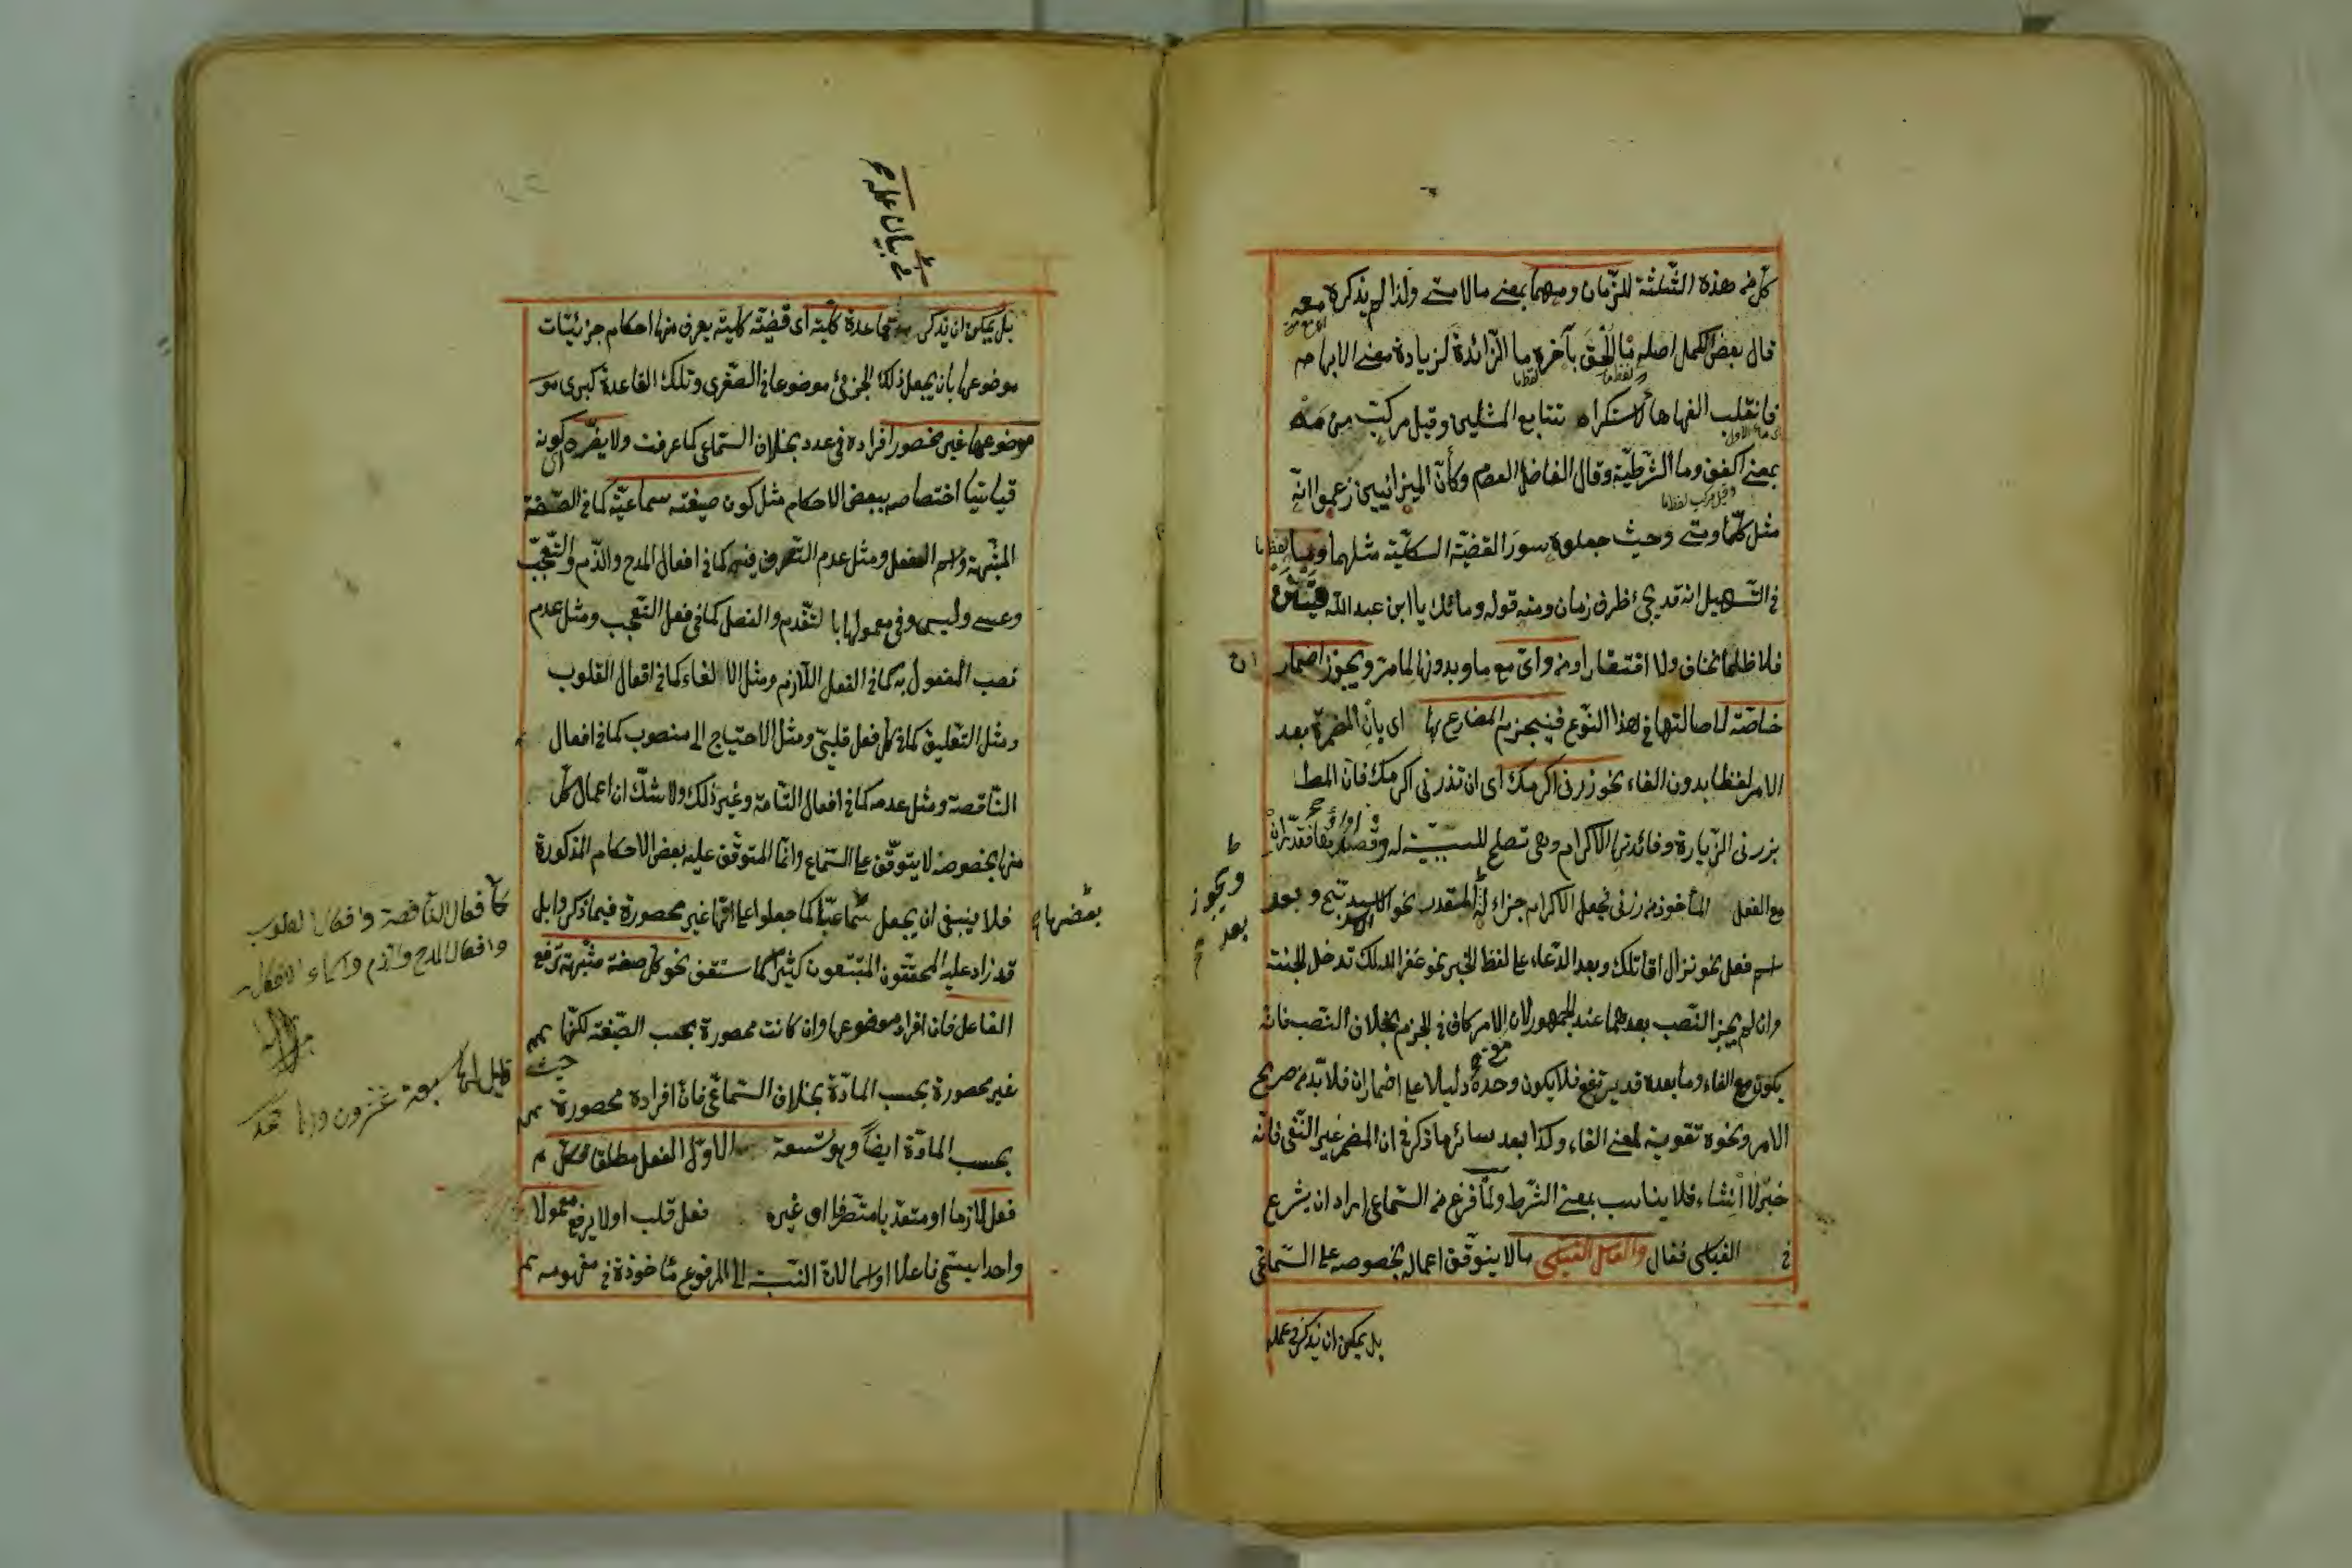 كل من هذه الثلثة للزمان ومهما بمعنى ما لا متى ولذا لم يذكره معه
قال بعض الكمل اصله ما الحق بآخره ما الزائدة لزيادة معنى الابهام
فانقلب الفها هاء لاستكراه تتابع المثلين وقيل مركب من مه
بمعنى اكفف وما الشرطية وقال الفاضل العصام وكأن الميزانيين زعموا انه
مثل كلما ومتى وحيث جعلوه سور القضية الكلية مثلهما
في التسهيل انه قد يجئ ظرف زمان ومنه قوله ومائك يا ابن عبد الله
فلا ظلما نخاف ولا افتقارا ومن واي مع ما وبدونها لما مر ويجوز اضمار ان
خاصة لاصالتها في هذا النوع فينجزم المضارع بها اي بان المضمرة بعد
الامر لفظا بدون الفاء نحو زرني اكرمك اي ان تزرني اكرمك فان المط
بزرني الزيارة وفائدتها الاكرام وهي تصلح للسببية له فقدر ان
مع الفعل المأخوذ من زرني فجعل الاكرام جزاء المقدر نحو وبعد
اسم فعل نحو نزال اقاتلك وبعد الدعاء على لفظ الخبر نحو غفر الله لك تدخل الجنة
وان لم يجز النصب بعدهما عند الجمهور لان الامر كاف في الجزم بخلاف النصب فانه
يكون مع الفاء وما بعده قد يرتفع فلا يكون وحده دليلا على اضمار ان فلا بد من صريح
الامر ونحوه تقوية لمعنى الفاء وكذا بعد سائر ما ذكر في ان المضمر غير النفي فانه
خبر لا انشاء فلا يناسب بمعنى الشرط ولما فرغ من السماعي اراد ان يشرع
في القياسي فقال والعامل القياسي ما لا يتوقف اعماله بخصوصه على السماعي
بل يمكن ان يذكر في عمله
ويجوز
بعد
في بيان عمله
بل يمكن ان يذكر قاعدة كلية اي قضية كلية يعرف منها احكام جزئيات
موضوعها بان يجعل ذلك الجزئي موضوعا في الصغرى وتلك القاعدة كبرى
موضوعها غير محصور افراده في عدد بخلاف السماعي كما عرفت ولا يضره كونه
قياسيا اختصاصه ببعض الاحكام مثل كون صيغته سماعية كما في الصفة
المشبهة واسم الفعل ومثل عدم التصرف فيه كما في افعال المدح والذم والتعجب
وعسى وليس وفي معمولها بالتقدم والفصل كما في فعل التعجب ومثل عدم
نصب المفعول به كما في الفعل اللازم ومثل الالغاء كما في افعال القلوب
ومثل التعليق كما في كل فعل قلبي ومثل الاحتياج الى منصوب كما في افعال
الناقصة ومثل عدمه كما في افعال التامة وغير ذلك ولا شك ان اعمال كل
منها بخصوصه لا يتوقف على السماع وانما المتوقف عليه بعض الاحكام المذكورة
فلا ينبغي ان يجعل بعضها سماعيا كما جعلوا على انها غير محصورة فيما ذكروا بل
قد زاد عليه المحققون المتتبعون كثيرا كما ستقف نحو كل صفة مشبهة ترفع
الفاعل فان افراد موضوعها وان كانت محصورة بحسب الصيغة لكنها
غير محصورة بحسب المادة بخلاف السماعي فان افراده محصورة
بحسب المادة ايضا وهو تسعة الاول الفعل مطلقا فكل
فعل لازما او متعديا متصرفا او غيره فعل قلب او لا يرفع معمولا
واحدا يسمى فاعلا او اسما لان النسبة الى المرفوع مأخوذة في مفهومه
كافعال الناقصة وافعال القلوب
وافعال المدح والذم واسماء الافعال